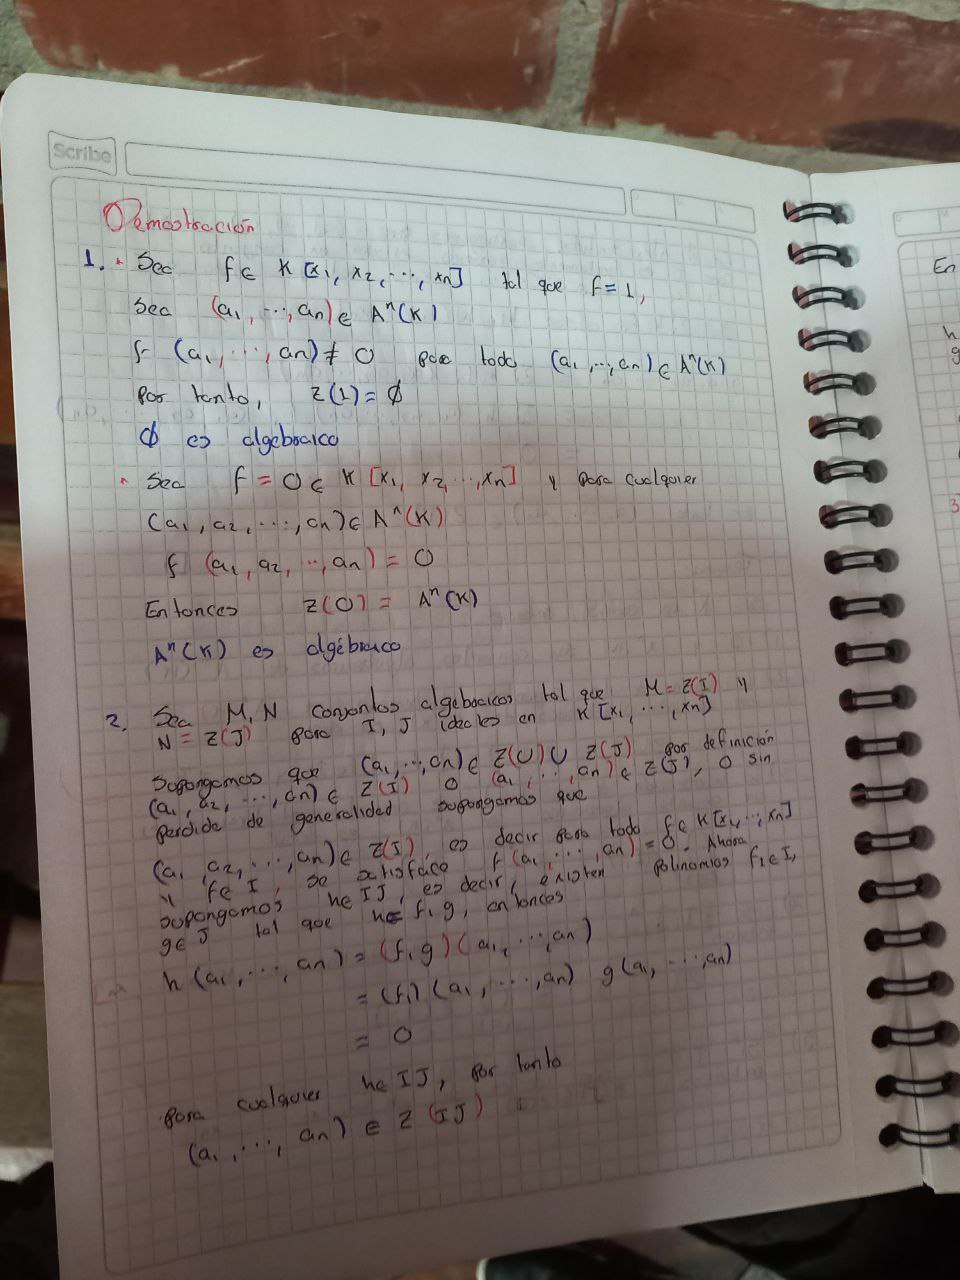 Scribe
Demostración
1. • Sea f ∈ K [x1, x2, ..., xn] tal que f = 1,
Sea (a1, ..., an) ∈ A^n(K)
f (a1, ..., an) ≠ 0 para todo (a1, ..., an) ∈ A^n(K)
Por tanto, Z(1) = ∅
∅ es algebraico
• Sea f = 0 ∈ K [x1, x2, ..., xn] y para cualquier
(a1, a2, ..., an) ∈ A^n(K)
f (a1, a2, ..., an) = 0
Entonces Z(0) = A^n(K)
A^n(K) es algébraico
2. Sea M, N conjuntos algebraicos tal que M = Z(I) y
N = Z(J) para I, J ideales en K [x1, ..., xn]
Supongamos que (a1, ..., an) ∈ Z(I) ∪ Z(J) por definición
(a1, a2, ..., an) ∈ Z(I) o (a1, ..., an) ∈ Z(J), o sin
perdida de generalidad supongamos que
(a1, a2, ..., an) ∈ Z(I), es decir para todo f ∈ K[x1, ..., xn]
y f ∈ I, se satisface f(a1, ..., an) = 0. Ahora
supongamos h ∈ IJ, es decir, existen polinomios f1 ∈ I,
g ∈ J tal que h = f1 g, entonces
h (a1, ..., an) = (f1 g)(a1, ..., an)
= (f1)(a1, ..., an) g(a1, ..., an)
= 0
para cualquier h ∈ IJ, por tanto
(a1, ..., an) ∈ Z (IJ)
En
h
g
3